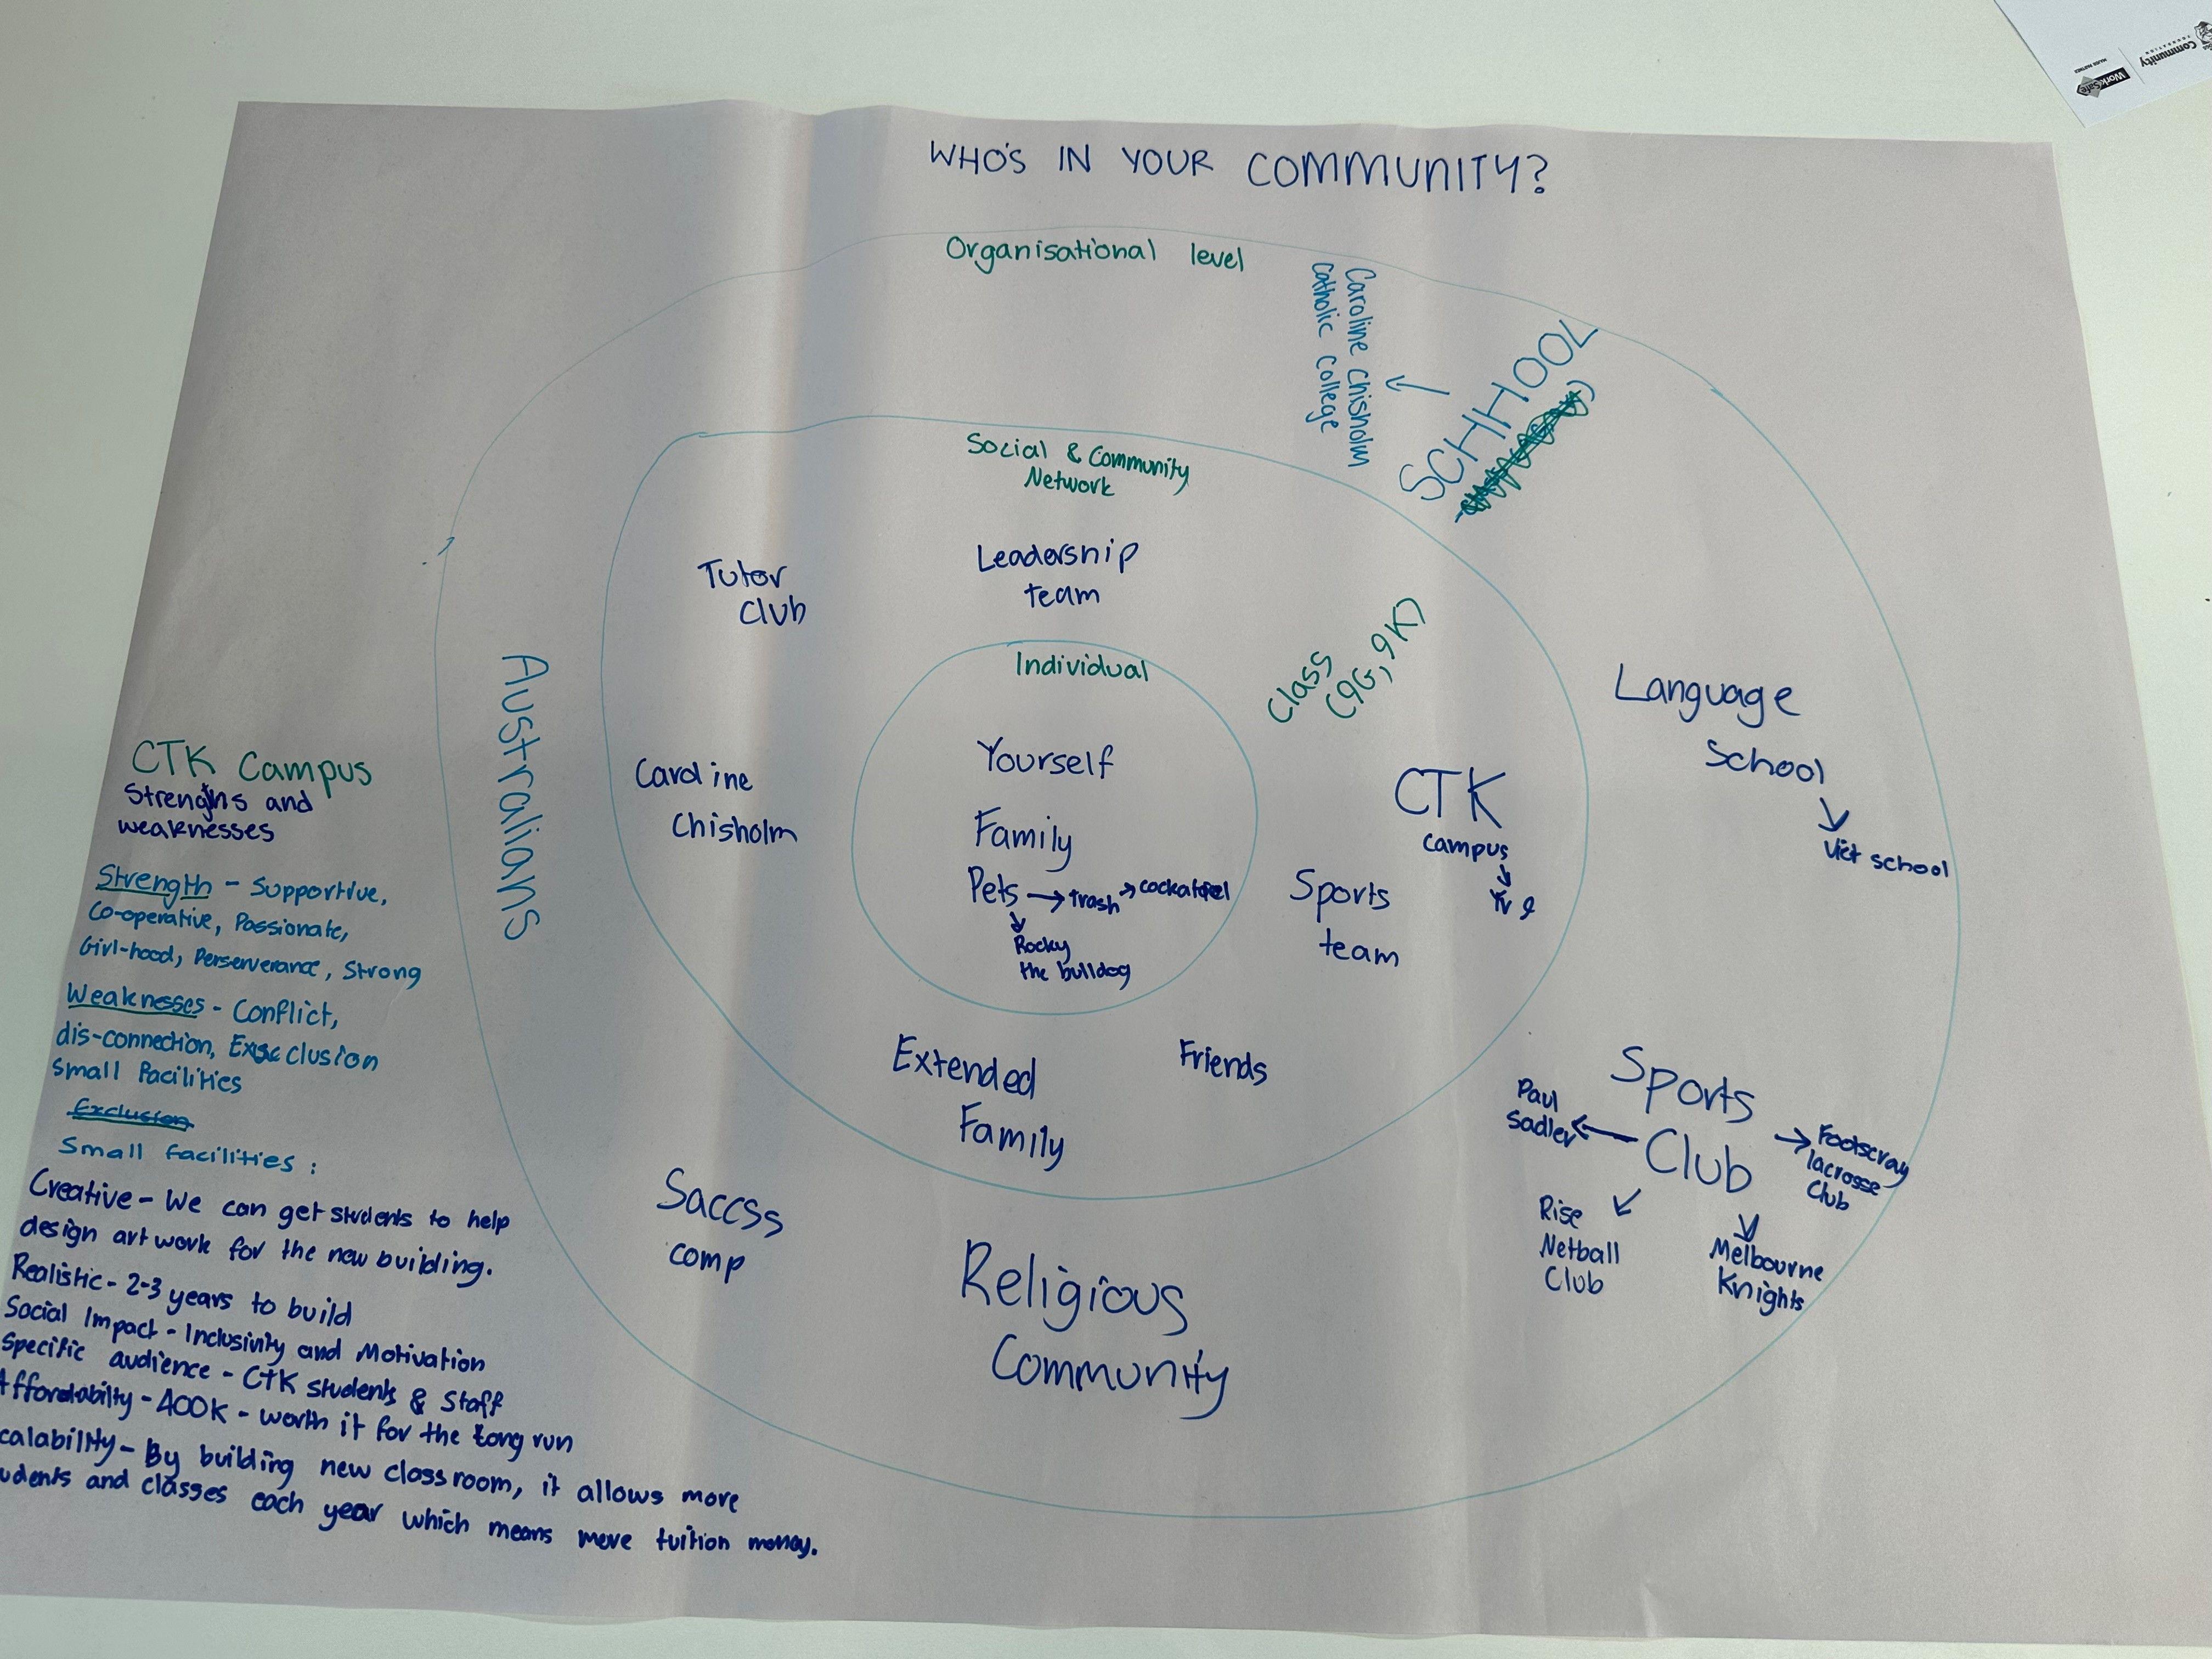 WHO'S IN YOUR COMMUNITY?
Organisational level
Caroline Chisholm
Catholic College
SCHHOOL
Social & Community
Network
Tutor
Club
Leadership
team
Class
(9G, 9K)
Individual
Yourself
Family
Pets → trash → cockatiel
Rocky
the bulldog
Caroline
Chisholm
CTK
Campus
Yr 9
Sports
team
Extended
Family
Friends
Australians
Language
School
Viet school
Sports
Club
Paul
Sadler
Footscray
lacrosse
Club
Rise
Netball
Club
Melbourne
Knights
Saccss
comp
Religious
Community
CTK Campus
Strengths and
weaknesses
Strength - Supportive,
Co-operative, Passionate,
Girl-hood, Perserverance, Strong
Weaknesses - Conflict,
dis-connection, Exclusion
Small Facilities
Exclusion
Small facilities:
Creative - We can get students to help
design art work for the new building.
Realistic - 2-3 years to build
Social Impact - Inclusivity and Motivation
Specific audience - CTK students & Staff
Affordabilty - 400K - worth it for the long run
calability - By building new classroom, it allows more
udents and classes each year which means more tuition money.
Community
FOUNDATION
MAJOR PARTNER
WorkSafe